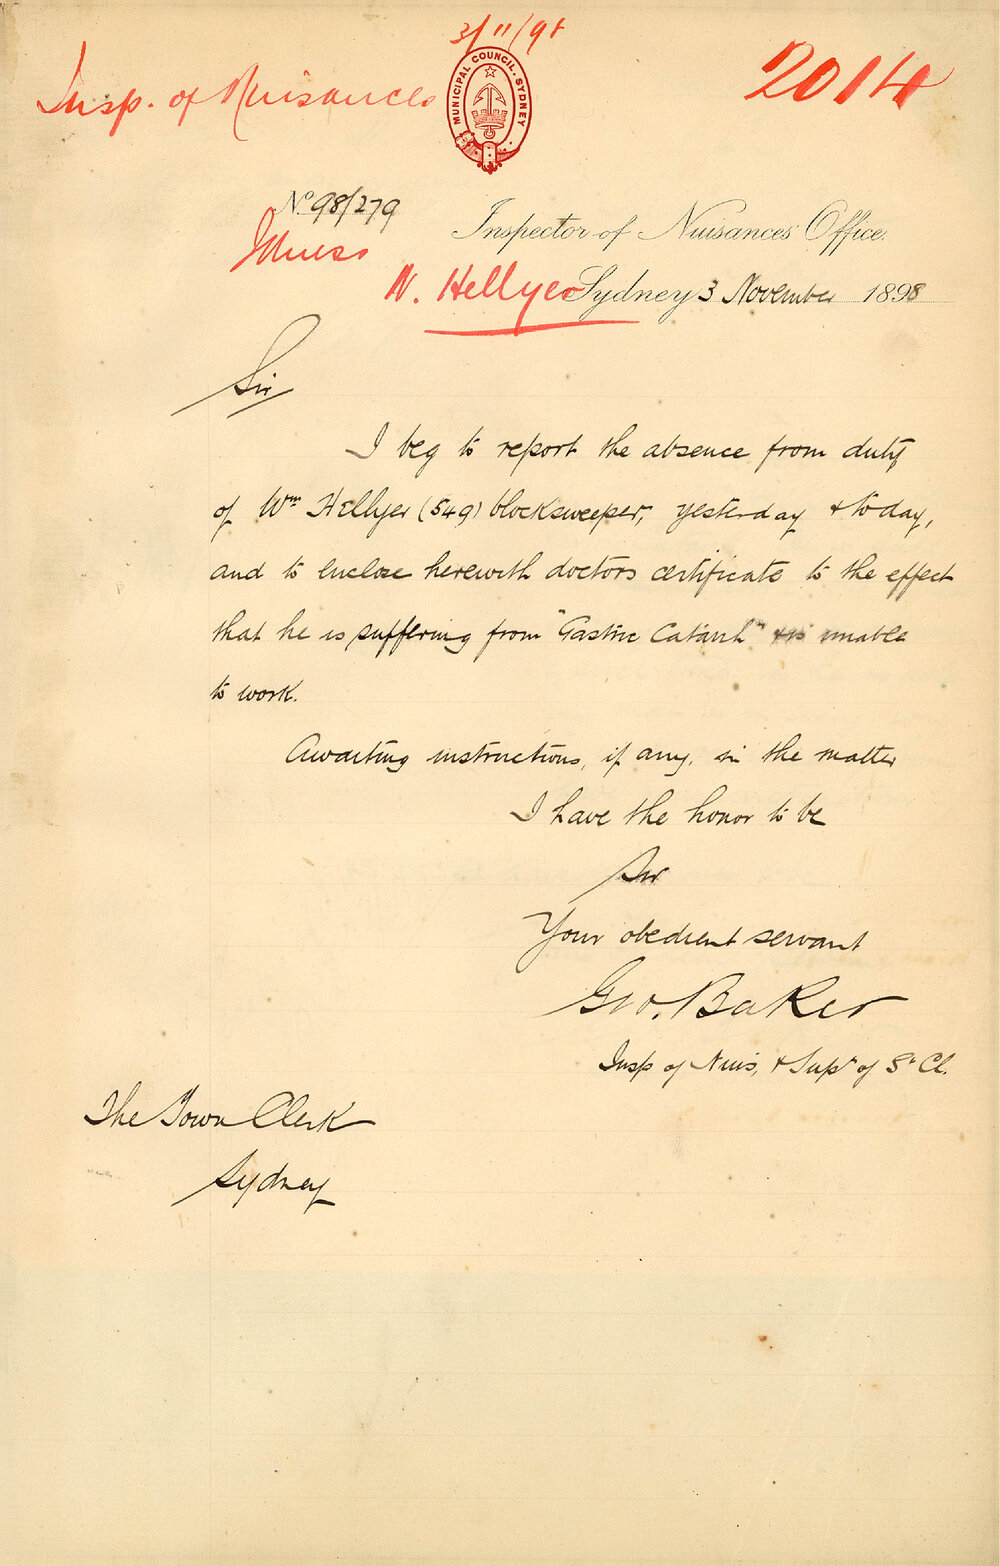 3/11/98
Insp. of Nuisances
MUNICIPAL COUNCIL. SYDNEY
2014
No. 98/279
Illness
Inspector of Nuisances' Office.
W. Hellyer
Sydney 3 November 1898
Sir
I beg to report the absence from duty
of Wm Hellyer (549) blocksweeper, yesterday & today,
and to enclose herewith doctors certificate to the effect
that he is suffering from "Gastric Catarrh" & is unable
to work.
Awaiting instructions, if any, in the matter
I have the honor to be
Sir
Your obedient servant
Geo. Baker
Insp of Nuis, & Supt of St Cl.
The Town Clerk
Sydney